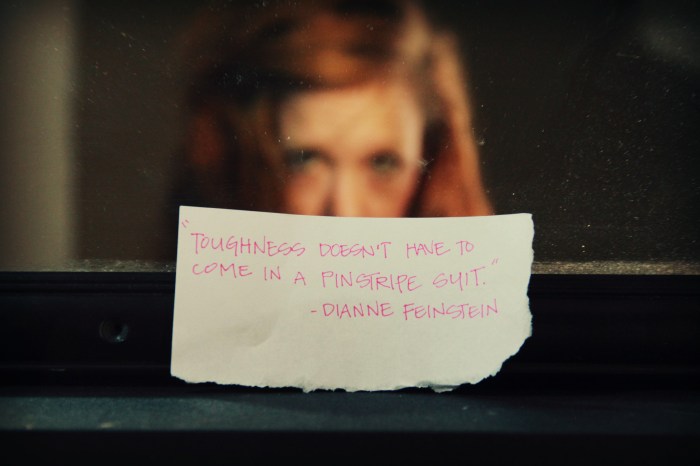 "TOUGHNESS DOESN'T HAVE TO
COME IN A PINSTRIPE SUIT."
- DIANNE FEINSTEIN